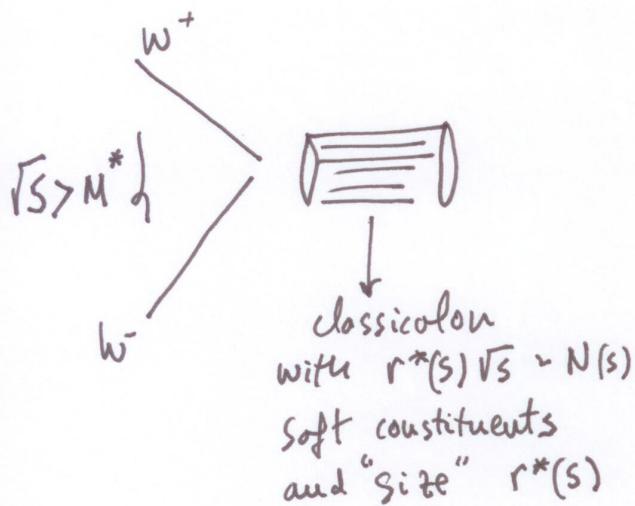 W+
√s > M* }
W-
classicolon
with r*(s)√s ~ N(s)
soft constituents
and "size" r*(s)